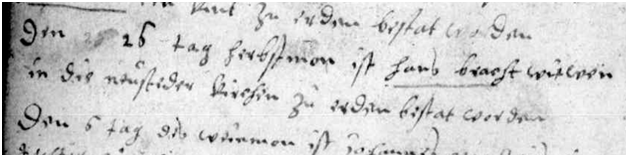 kint zu erden bestat worden
Den 26 tag herbstmon ist hans bracht
in die neusteder kirchen zu erden bestat worden
Den 6 tag des weinmon ist